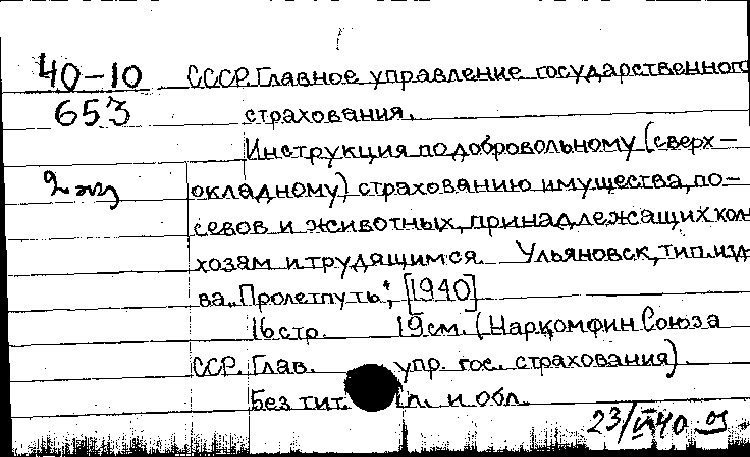 40-10 СССР. Главное управление государственного
653 страхования.
Инструкция по добровольному (сверх-
2 экз окладному) страхованию имущества, по-
севов и животных, принадлежащих кол-
хозам и трудящимся. Ульяновск, тип. изд-
ва „Пролет путь“, [1940]
16 стр. 19 см. (Наркомфин Союза
ССР. Глав. упр. гос. страхования).
Без тит. л. и обл.
23/VI 40